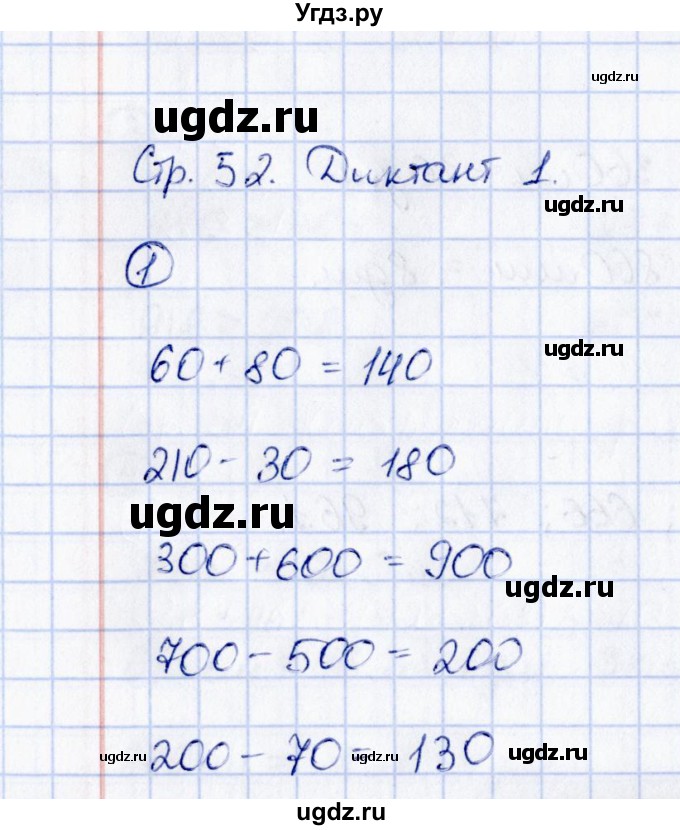 Угдз.ру
ugdz.ru
ugdz.ru
Стр. 52. Диктант 1.
ugdz.ru
1
ugdz.ru
60 + 80 = 140
210 - 30 = 180
ugdz.ru
300 + 600 = 900
ugdz.ru
700 - 500 = 200
ugdz.ru 200 - 70 = 130 ugdz.ru
ugdz.ru
ugdz.ru